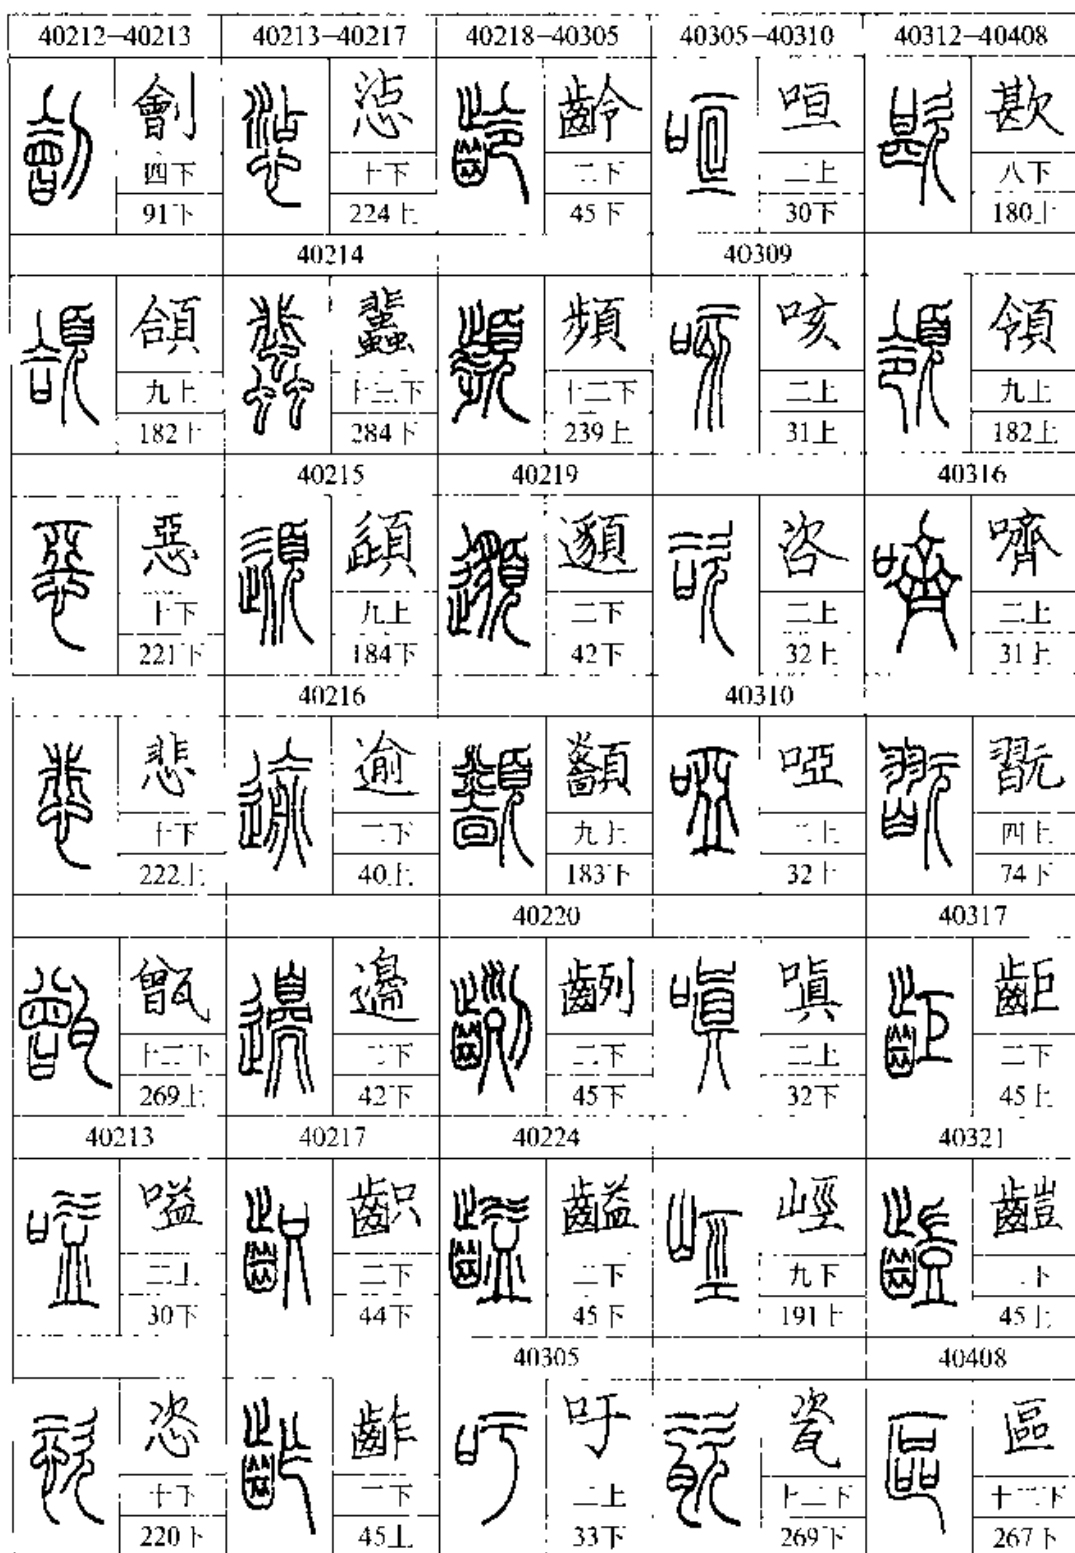 40212-40213
劊
四下
91下
頜
九上
182上
惡
十下
221下
悲
十下
222上
甑
十二下
269上
40213
嗌
二上
30下
恣
十下
220下
40213-40217
惉
十下
224上
40214
十三下
284下
40215
九上
184下
40216
逾
二下
40上
邊
二下
42下
40217
齞
二下
44下
齚
二下
45上
40218-40305
齡
二下
45下
頻
239上
40219
二下
42下
九上
183下
40220
二下
45下
40224
齸
二下
45下
40305
吁
二上
33下
40305-40310
咺
二上
30下
40309
咳
二上
31上
咨
二上
32上
40310
啞
二上
32上
嗔
二上
32下
九下
191上
瓷
十二下
269下
40312-40408
歁
八下
180上
領
九上
182上
40316
嚌
二上
31上
翫
四上
74下
40317
二下
45上
40321
45上
40408
區
十二下
267下